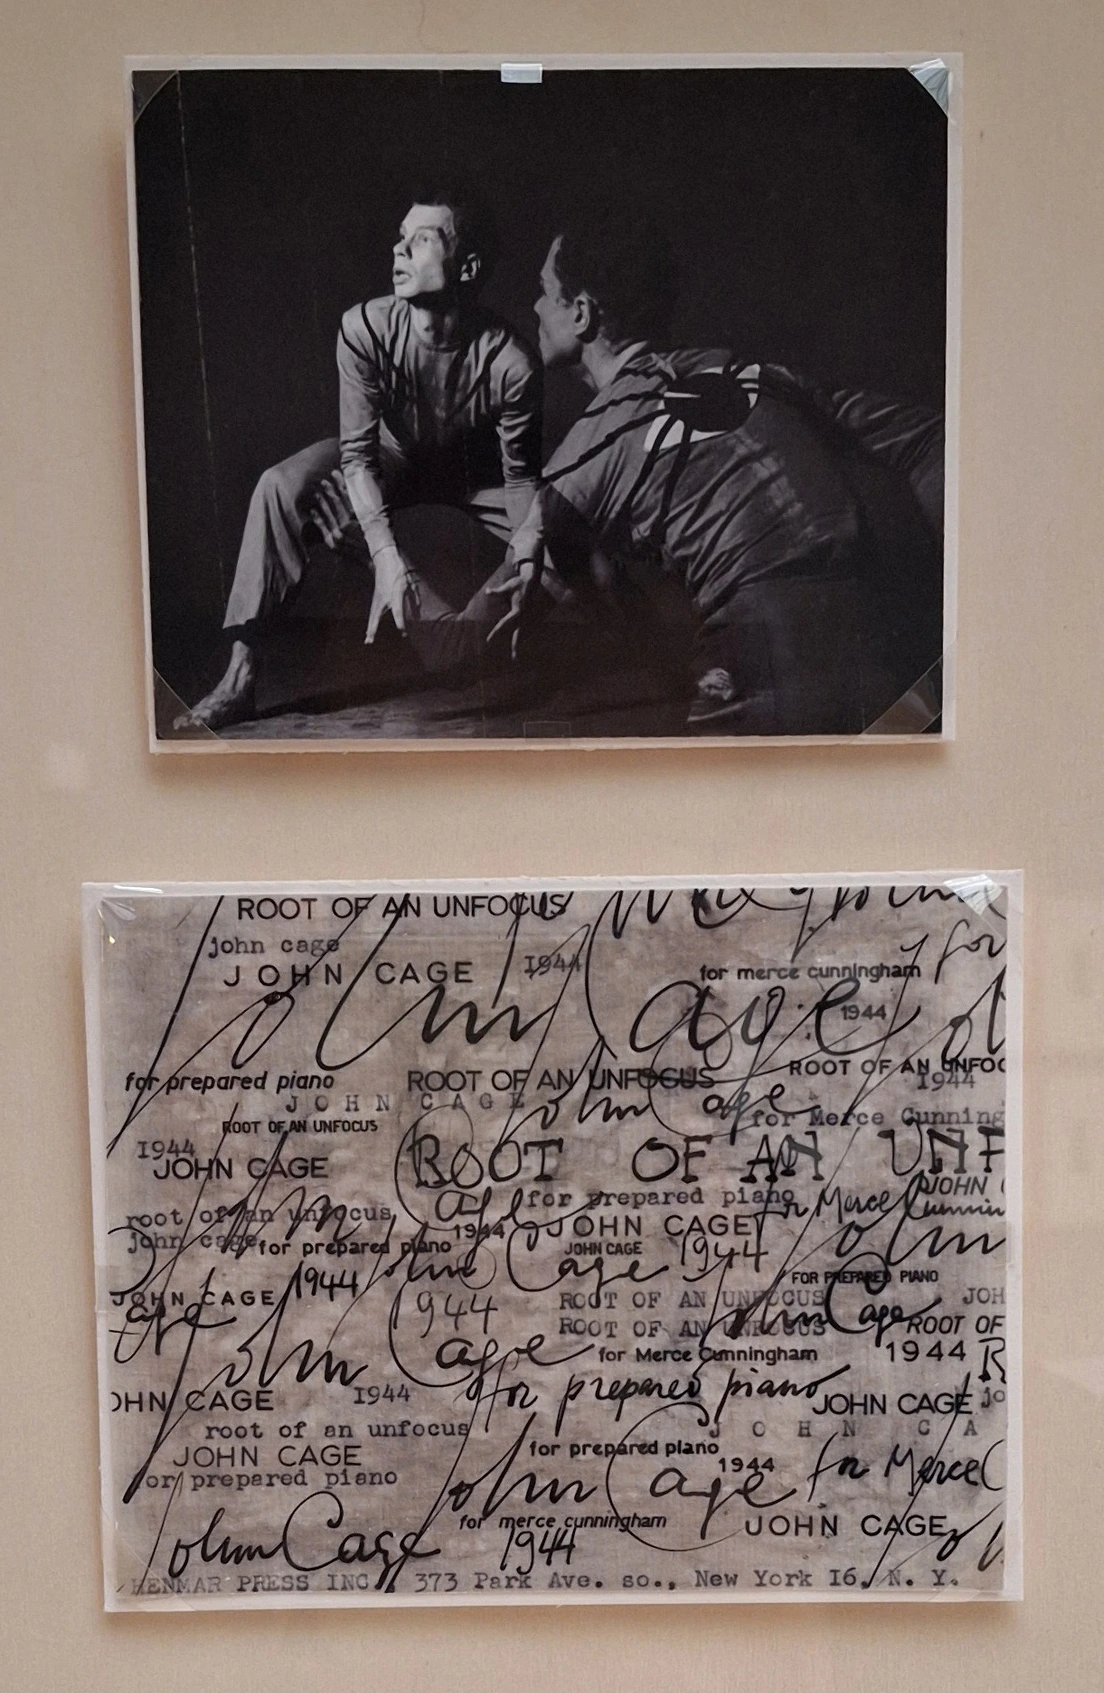 ROOT OF AN UNFOCUS
john cage
for
JOHN CAGE 1944
for merce cunningham
John Cage
1944
ROOT OF AN UNFOC
for prepared piano
ROOT OF AN UNFOCUS
1944
JOHN CAGE
John Cage
for Merce Cunning
ROOT OF AN UNFOCUS
1944
JOHN CAGE
ROOT OF AN UNF
JOHN
for prepared piano
for Merce Cunnin
root of an unfocus
Cage
1944
JOHN CAGE
john cage
for prepared piano
JOHN CAGE
1944
John
John Cage
FOR PREPARED PIANO
1944
JOHN CAGE
Cage
1944
ROOT OF AN UNFOCUS
JOH
John Cage
ROOT OF AN UNFOCUS
ROOT OF
John Cage
for Merce Cunningham
1944
R
for prepared piano
OHN CAGE
1944
JOHN CAGE
jo
root of an unfocus
JOHN CA
JOHN CAGE
for prepared piano
1944
or prepared piano
John Cage
for Merce C
for merce cunningham
JOHN CAGE
John Cage
1944
HENMAR PRESS INC. 373 Park Ave. so., New York 16, N. Y.